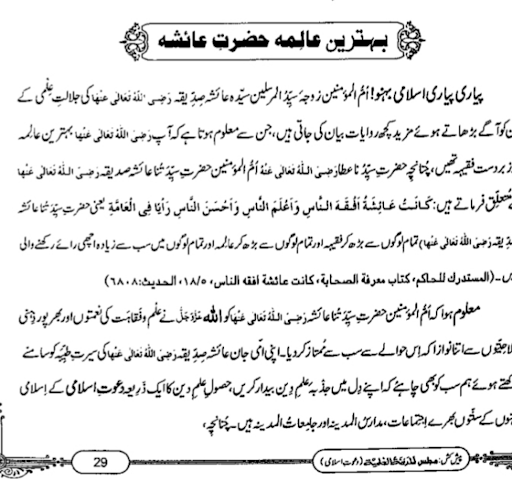 بہترین عالِمہ حضرت عائشہ
پیاری پیاری اسلامی بہنو! اُمُّ المؤمنین زوجۂ سیِّدُ المرسلین سیِّدہ عائشہ صِدِّیقہ رَضِیَ اللّٰہُ تَعَالٰی عَنْہَا کی جلالتِ علمی کے
کو آگے بڑھاتے ہوئے مزید کچھ روایات بیان کی جاتی ہیں، جن سے معلوم ہوتا ہے کہ آپ رَضِیَ اللّٰہُ تَعَالٰی عَنْہَا بہترین عالِمہ
زبردست فقیہہ تھیں، چُنانچِہ حضرتِ سیِّدُنا عطا رَضِیَ اللّٰہُ تَعَالٰی عَنْہُ اُمُّ المؤمنین حضرتِ سیِّدَتُنا عائشہ صدیقہ رَضِیَ اللّٰہُ تَعَالٰی عَنْہَا
مُتَعَلِّق فرماتے ہیں: كَانَتْ عَائِشَةُ أَفْقَهَ النَّاسِ وَأَعْلَمَ النَّاسِ وَأَحْسَنَ النَّاسِ رَأْيًا فِى الْعَامَّةِ یعنی حضرتِ سیِّدَتُنا عائشہ
یقہ رَضِیَ اللّٰہُ تَعَالٰی عَنْہَا) تمام لوگوں سے بڑھ کر فقیہہ اور تمام لوگوں سے بڑھ کر عالِمہ اور تمام لوگوں میں سب سے زیادہ اچھی رائے رکھنے والی
۔(المستدرك للحاكم، كتاب معرفة الصحابة، كانت عائشة افقه الناس، ۱۸/۵، الحديث: ۶۸۰۸)
معلوم ہوا کہ اُمُّ المؤمنین حضرتِ سیِّدَتُنا عائشہ رَضِیَ اللّٰہُ تَعَالٰی عَنْہَا کو اللّٰہ عَزَّوَجَلَّ نے علم و فقاہت کی نعمتوں اور بھرپور ذِہنی
لاحیّتوں سے اتنا نوازا کہ اِس حوالے سے سب سے مُمتاز کر دیا۔ اپنی امّی جان عائشہ صِدِّیقہ رَضِیَ اللّٰہُ تَعَالٰی عَنْہَا کی سیرتِ طیِّبہ کو سامنے
کھتے ہوئے ہم سب کو بھی چاہئے کہ اپنے دِل میں جذبۂ علمِ دِین بیدار کریں، حصولِ علمِ دین کا ایک ذَرِیعہ دعوتِ اسلامی کے اسلامی
نوں کے سنّتوں بھرے اِجتماعات، مدارسُ المدینہ اور جامعاتُ المدینہ ہیں۔ چُنانچِہ،
پیش کش: مجلس المدینۃ العلمیۃ (دعوتِ اسلامی)
29